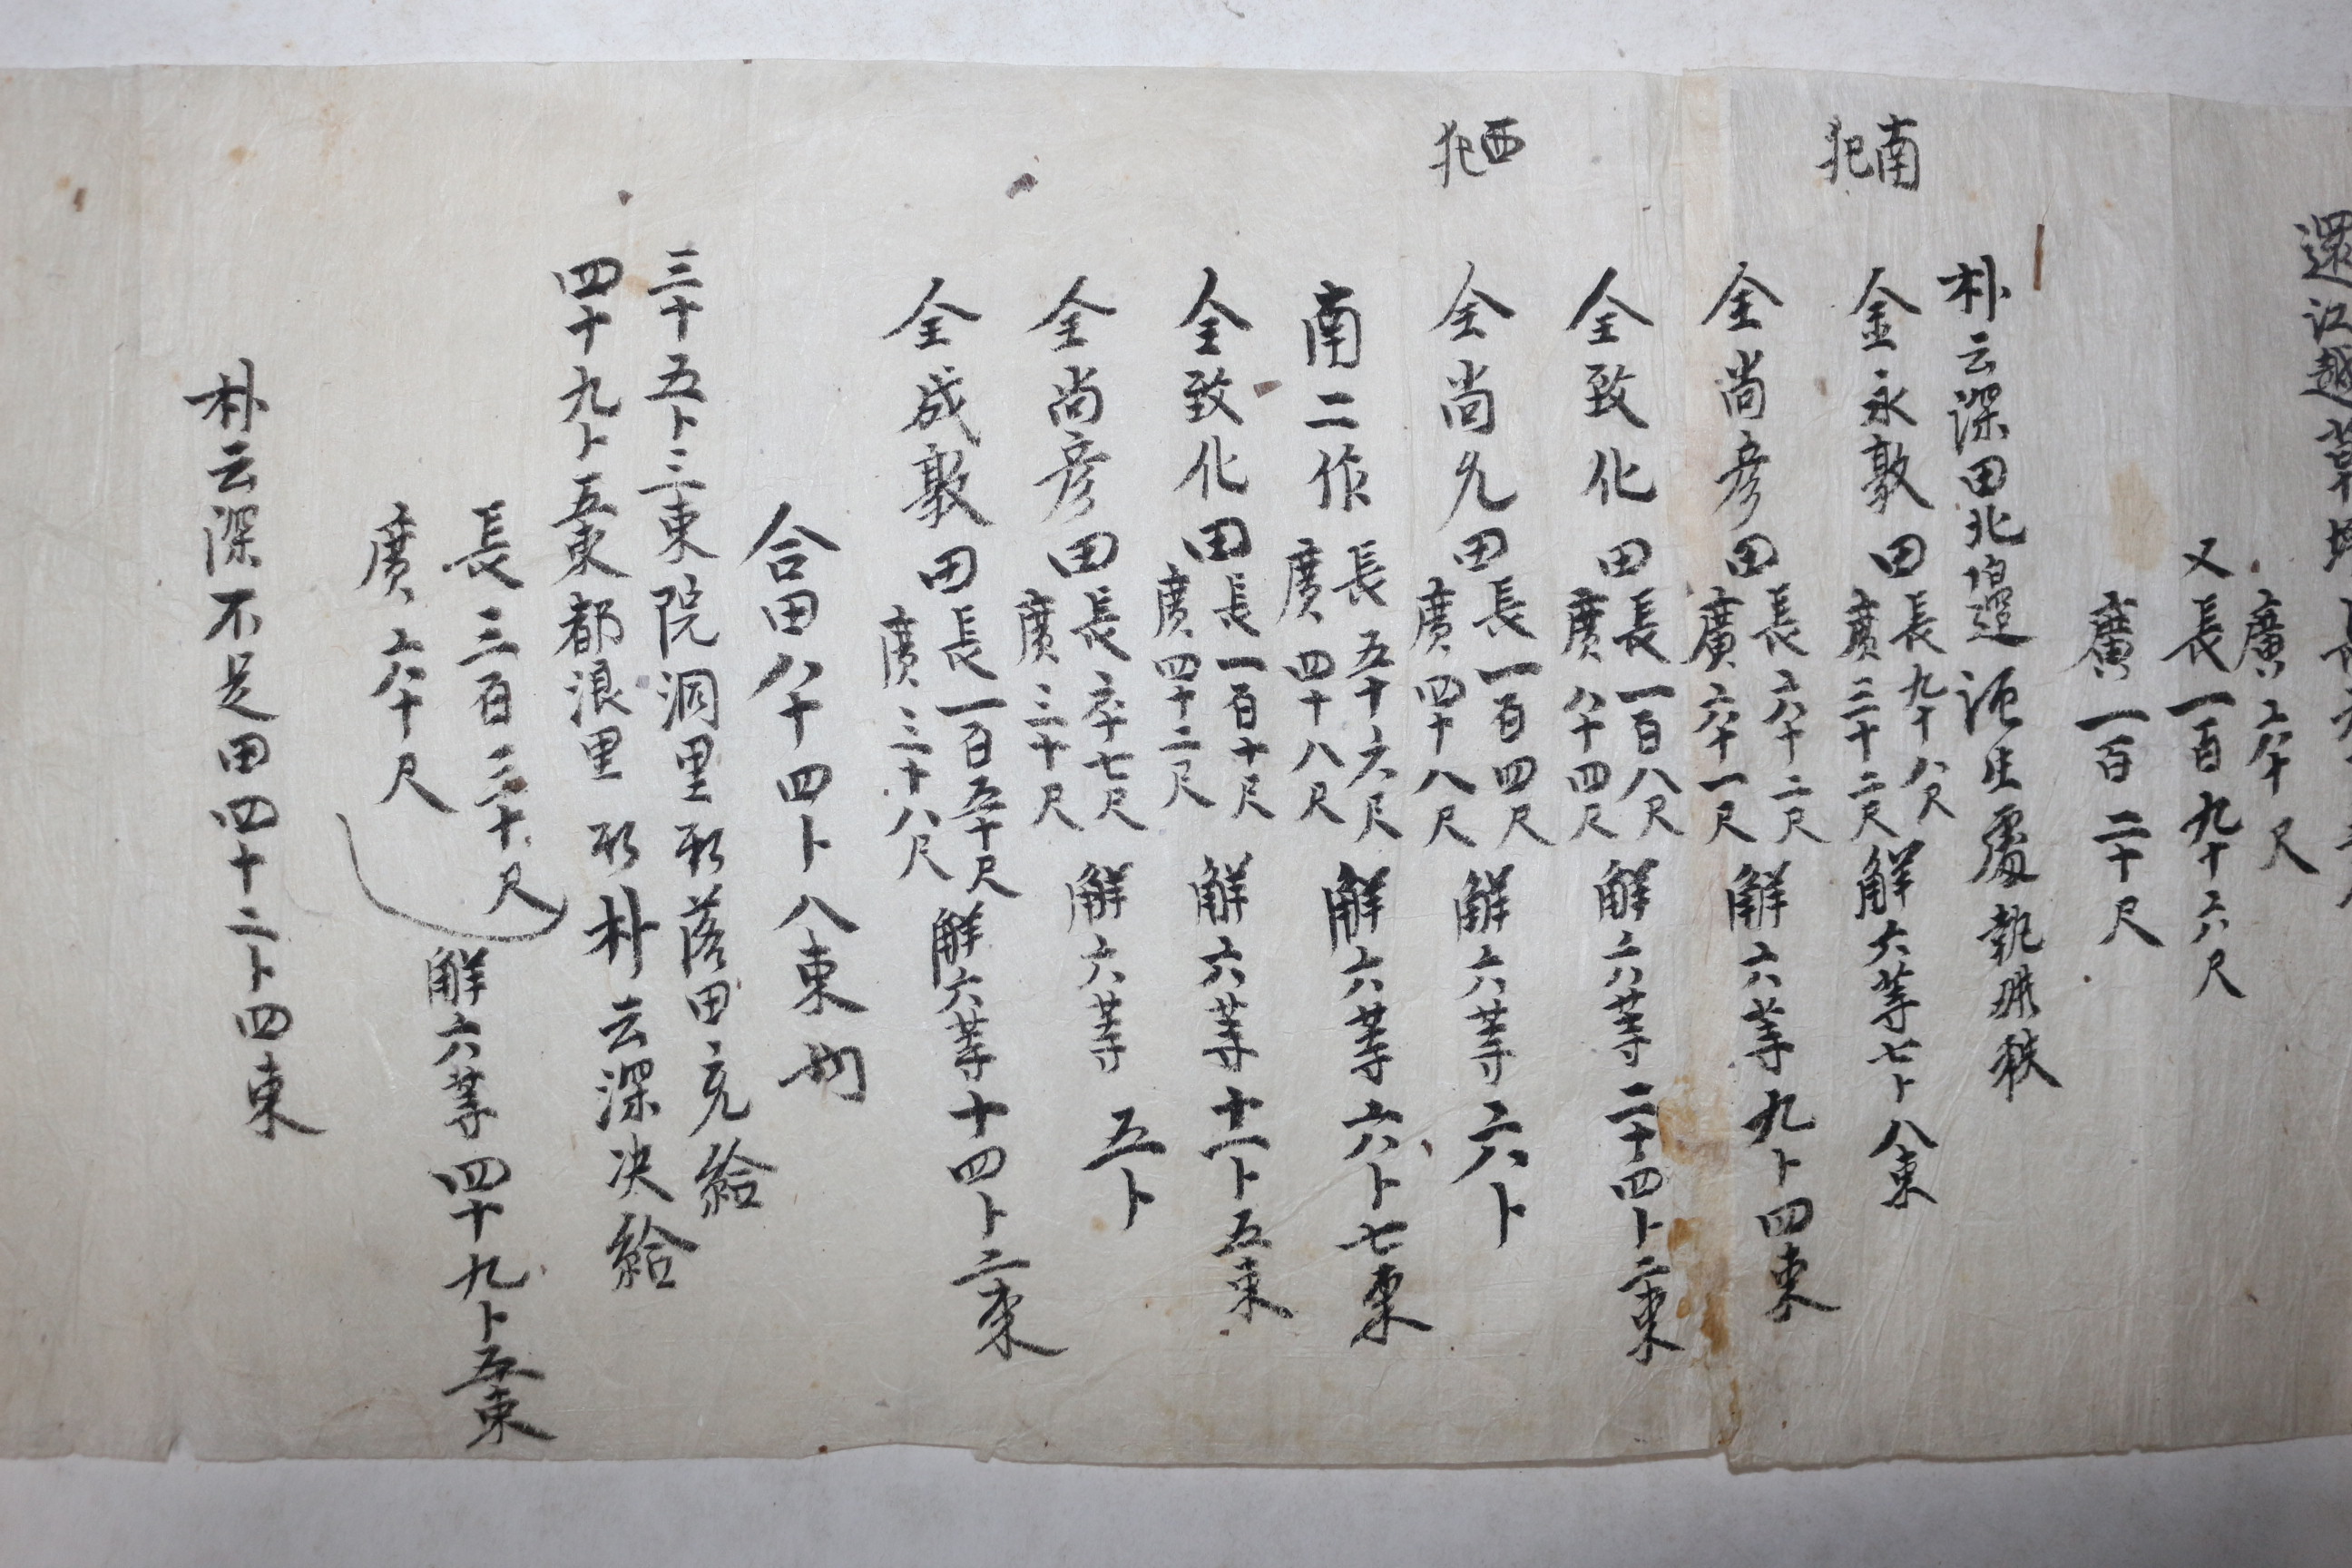 還江越
廣六十尺
又長一百九十六尺
廣一百二十尺
朴云深田北邊泥生處執
南犯
金永敦田長九十八尺廣三十二尺解六等七卜八束
全尚彦田長六十二尺廣六十一尺解六等九卜四束
全致化田長一百八尺廣八十四尺解六等二十四卜二束
西犯
全尚九田長一百四尺廣四十八尺解六等六卜
南二作長五十六尺廣四十八尺解六等六卜七束
全致化田長一百十尺廣四十二尺解六等十一卜五束
全尚彦田長六十七尺廣三十尺解六等五卜
全成敦田長一百五十尺廣三十八尺解六等十四卜二束
合田八十四卜八束內
三十五卜三束院洞里所落田充給
四十九卜五束都浪里所朴云深决給
長三百三十尺
廣六十尺
解六等四十九卜五束
朴云深不足田四十二卜四束